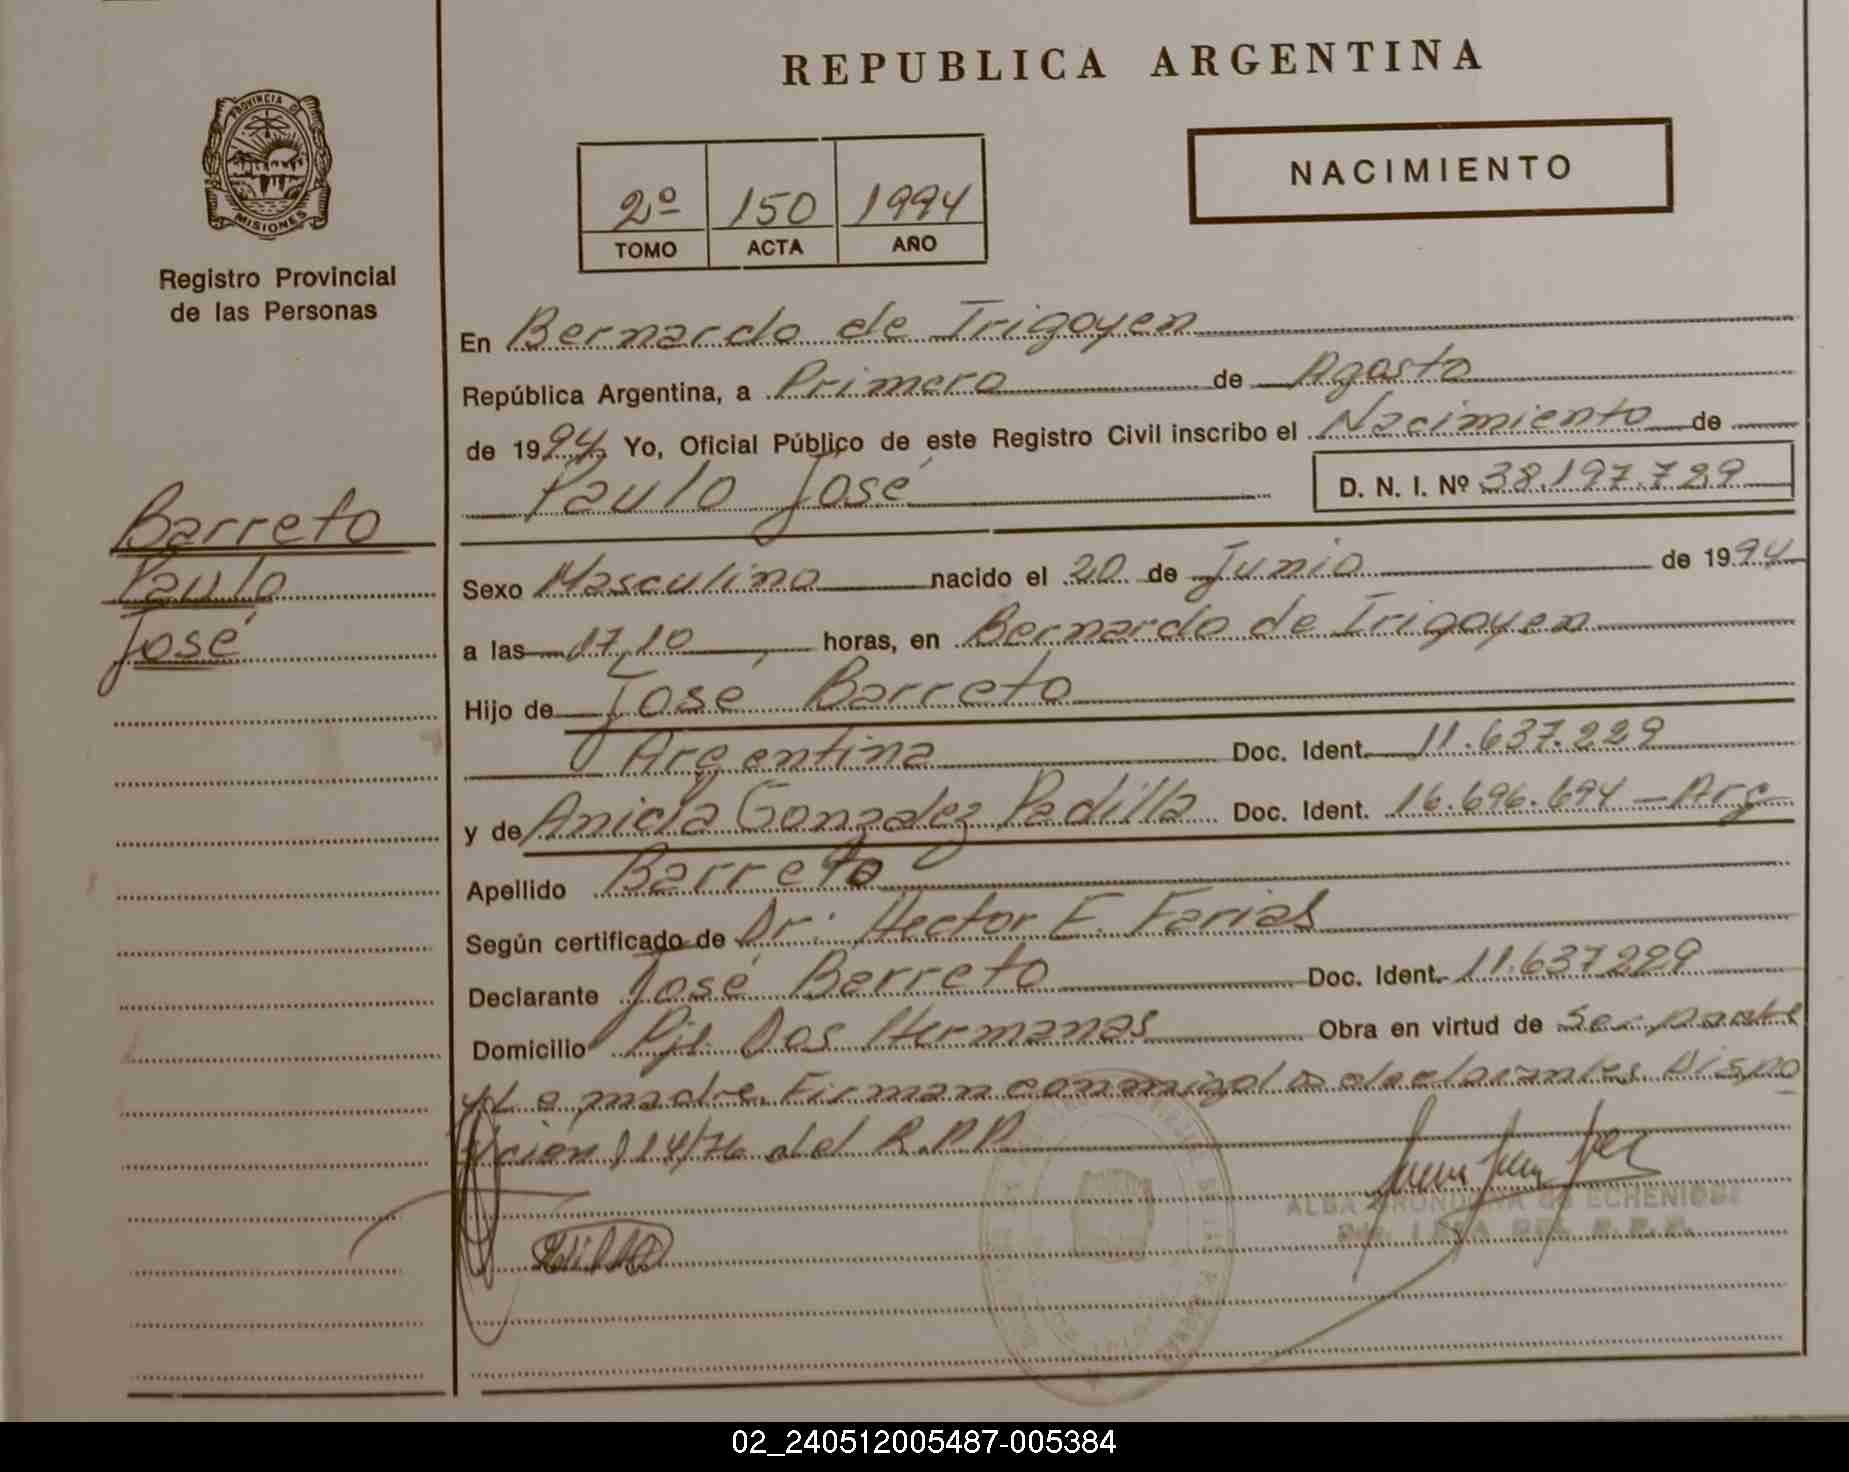 REPUBLICA ARGENTINA
PROVINCIA DE
MISIONES
Registro Provincial
de las Personas
2º 150 1994
TOMO ACTA AÑO
NACIMIENTO
En Bernardo de Irigoyen
República Argentina, a Primero de Agosto
de 1994 Yo, Oficial Público de este Registro Civil inscribo el Nacimiento de
Paulo José D. N. I. Nº 38.197.729
Barreto
Paulo
José
Sexo Masculino nacido el 20 de Junio de 1994
a las 17,10 horas, en Bernardo de Irigoyen
Hijo de José Barreto
Argentina Doc. Ident. 11.637.229
y de Anicla Gonzalez Padilla Doc. Ident. 16.696.694 - Arg
Apellido Barreto
Según certificado de Dr. Hector E. Farias
Declarante José Barreto Doc. Ident. 11.637229
Domicilio Pje. Dos Hermanas Obra en virtud de Ser padre
y La madre. Firman conmigo los declarantes. Dispo
sición 114/76 del R.P.P.
ALBA DE ECHENIQUE
R.P.P.
02_240512005487-005384